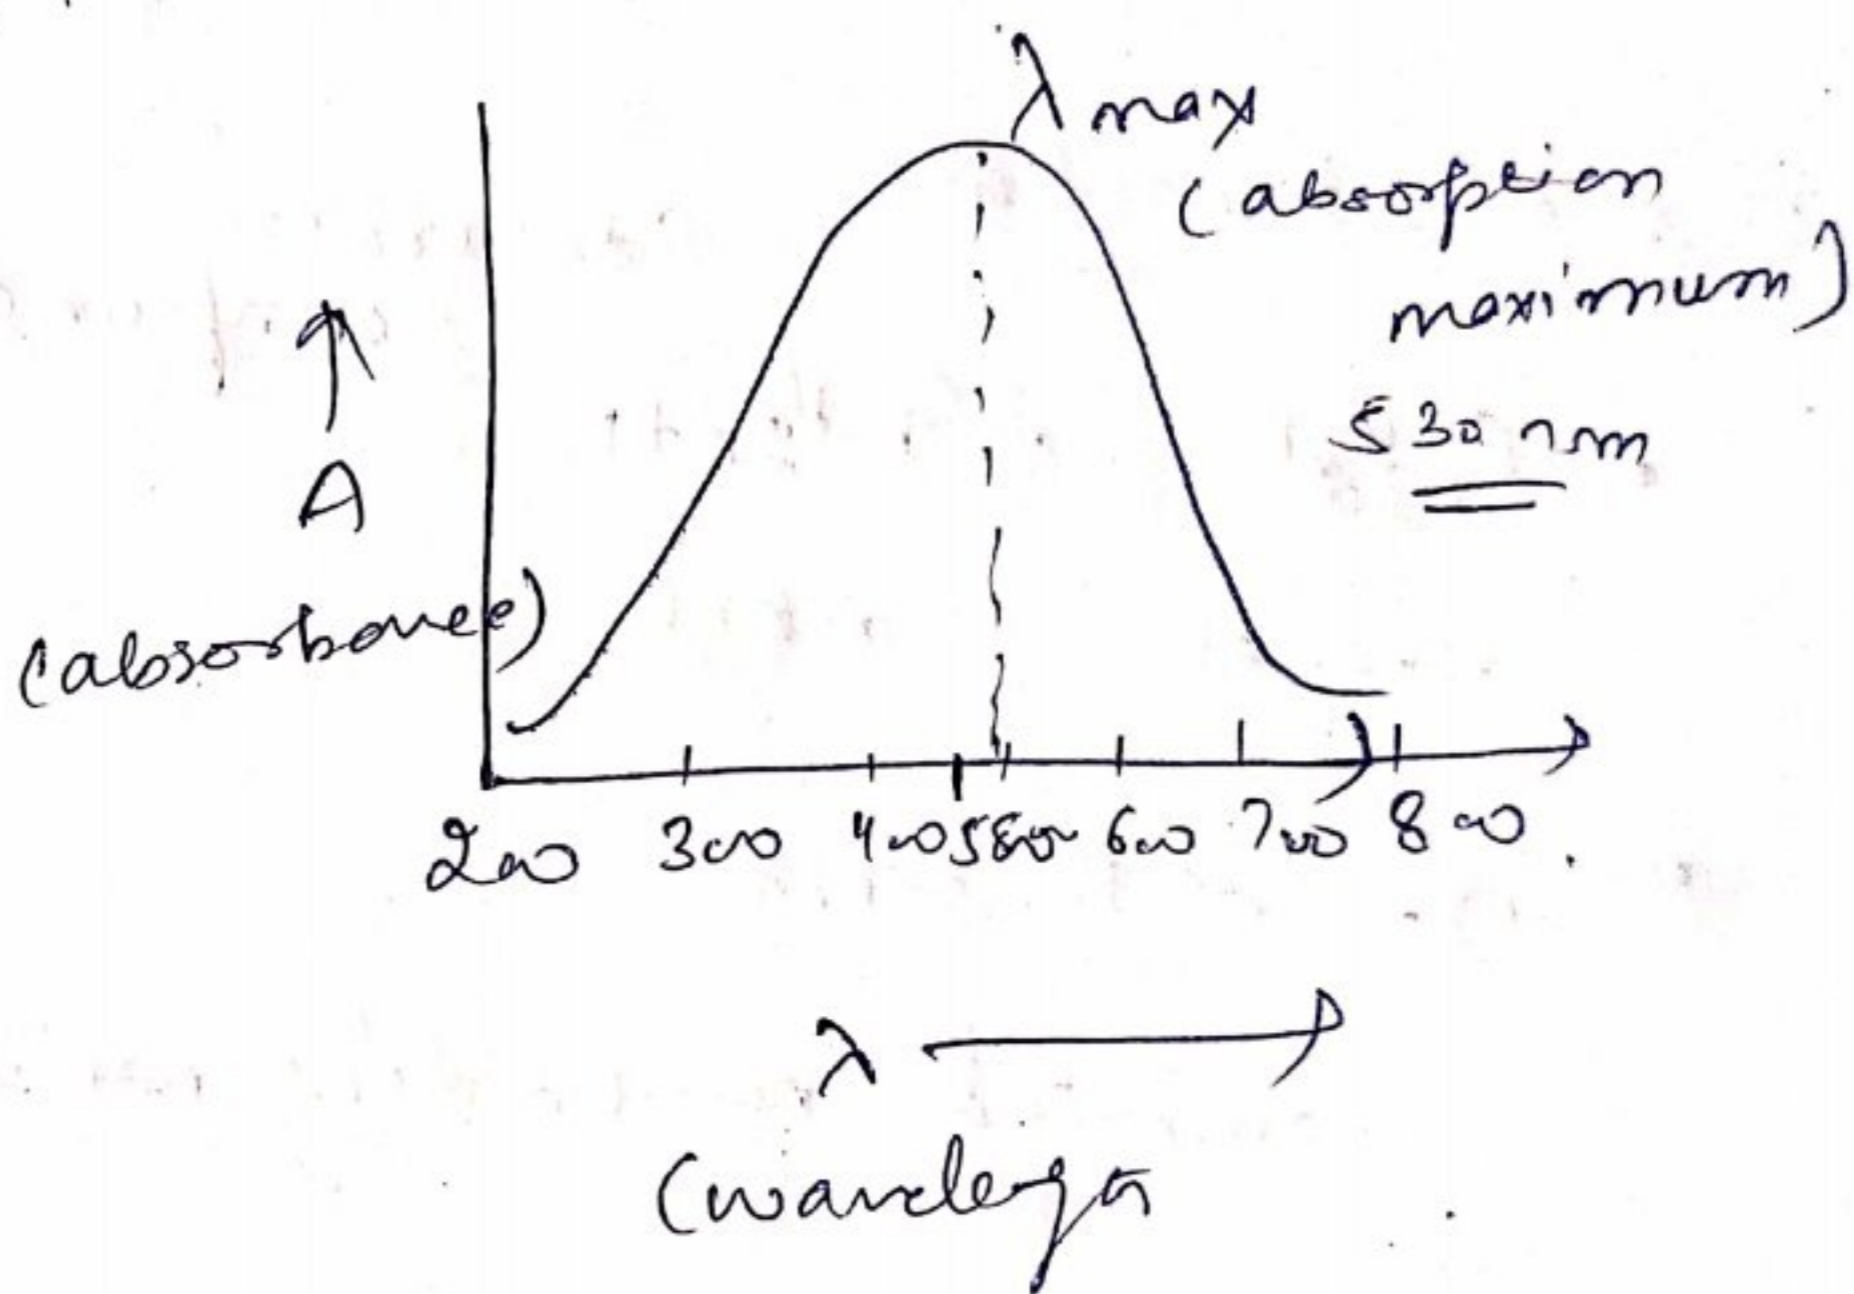 λ max
(absorption
maximum)
530 nm
A
(absorbance)
200 300 400 600 700 800
λ
(wavelength